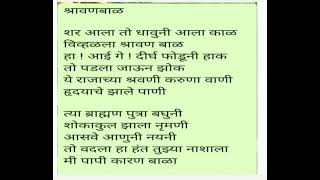 श्रावणबाळ
शर आला तो धावुनी आला काळ
विव्हळला श्रावण बाळ
हा ! आई गे ! दीर्घ फोडूनी हाक
तो पडला जाऊन झोक
ये राजाच्या श्रवणी करुणा वाणी
हृदयाचे झाले पाणी
त्या ब्राह्मण पुत्रा बघुनी
शोकाकुल झाला नृमणी
आसवे आणुनी नयनी
तो वदला हा हंत तुझ्या नाशाला
मी पापी कारण बाळा